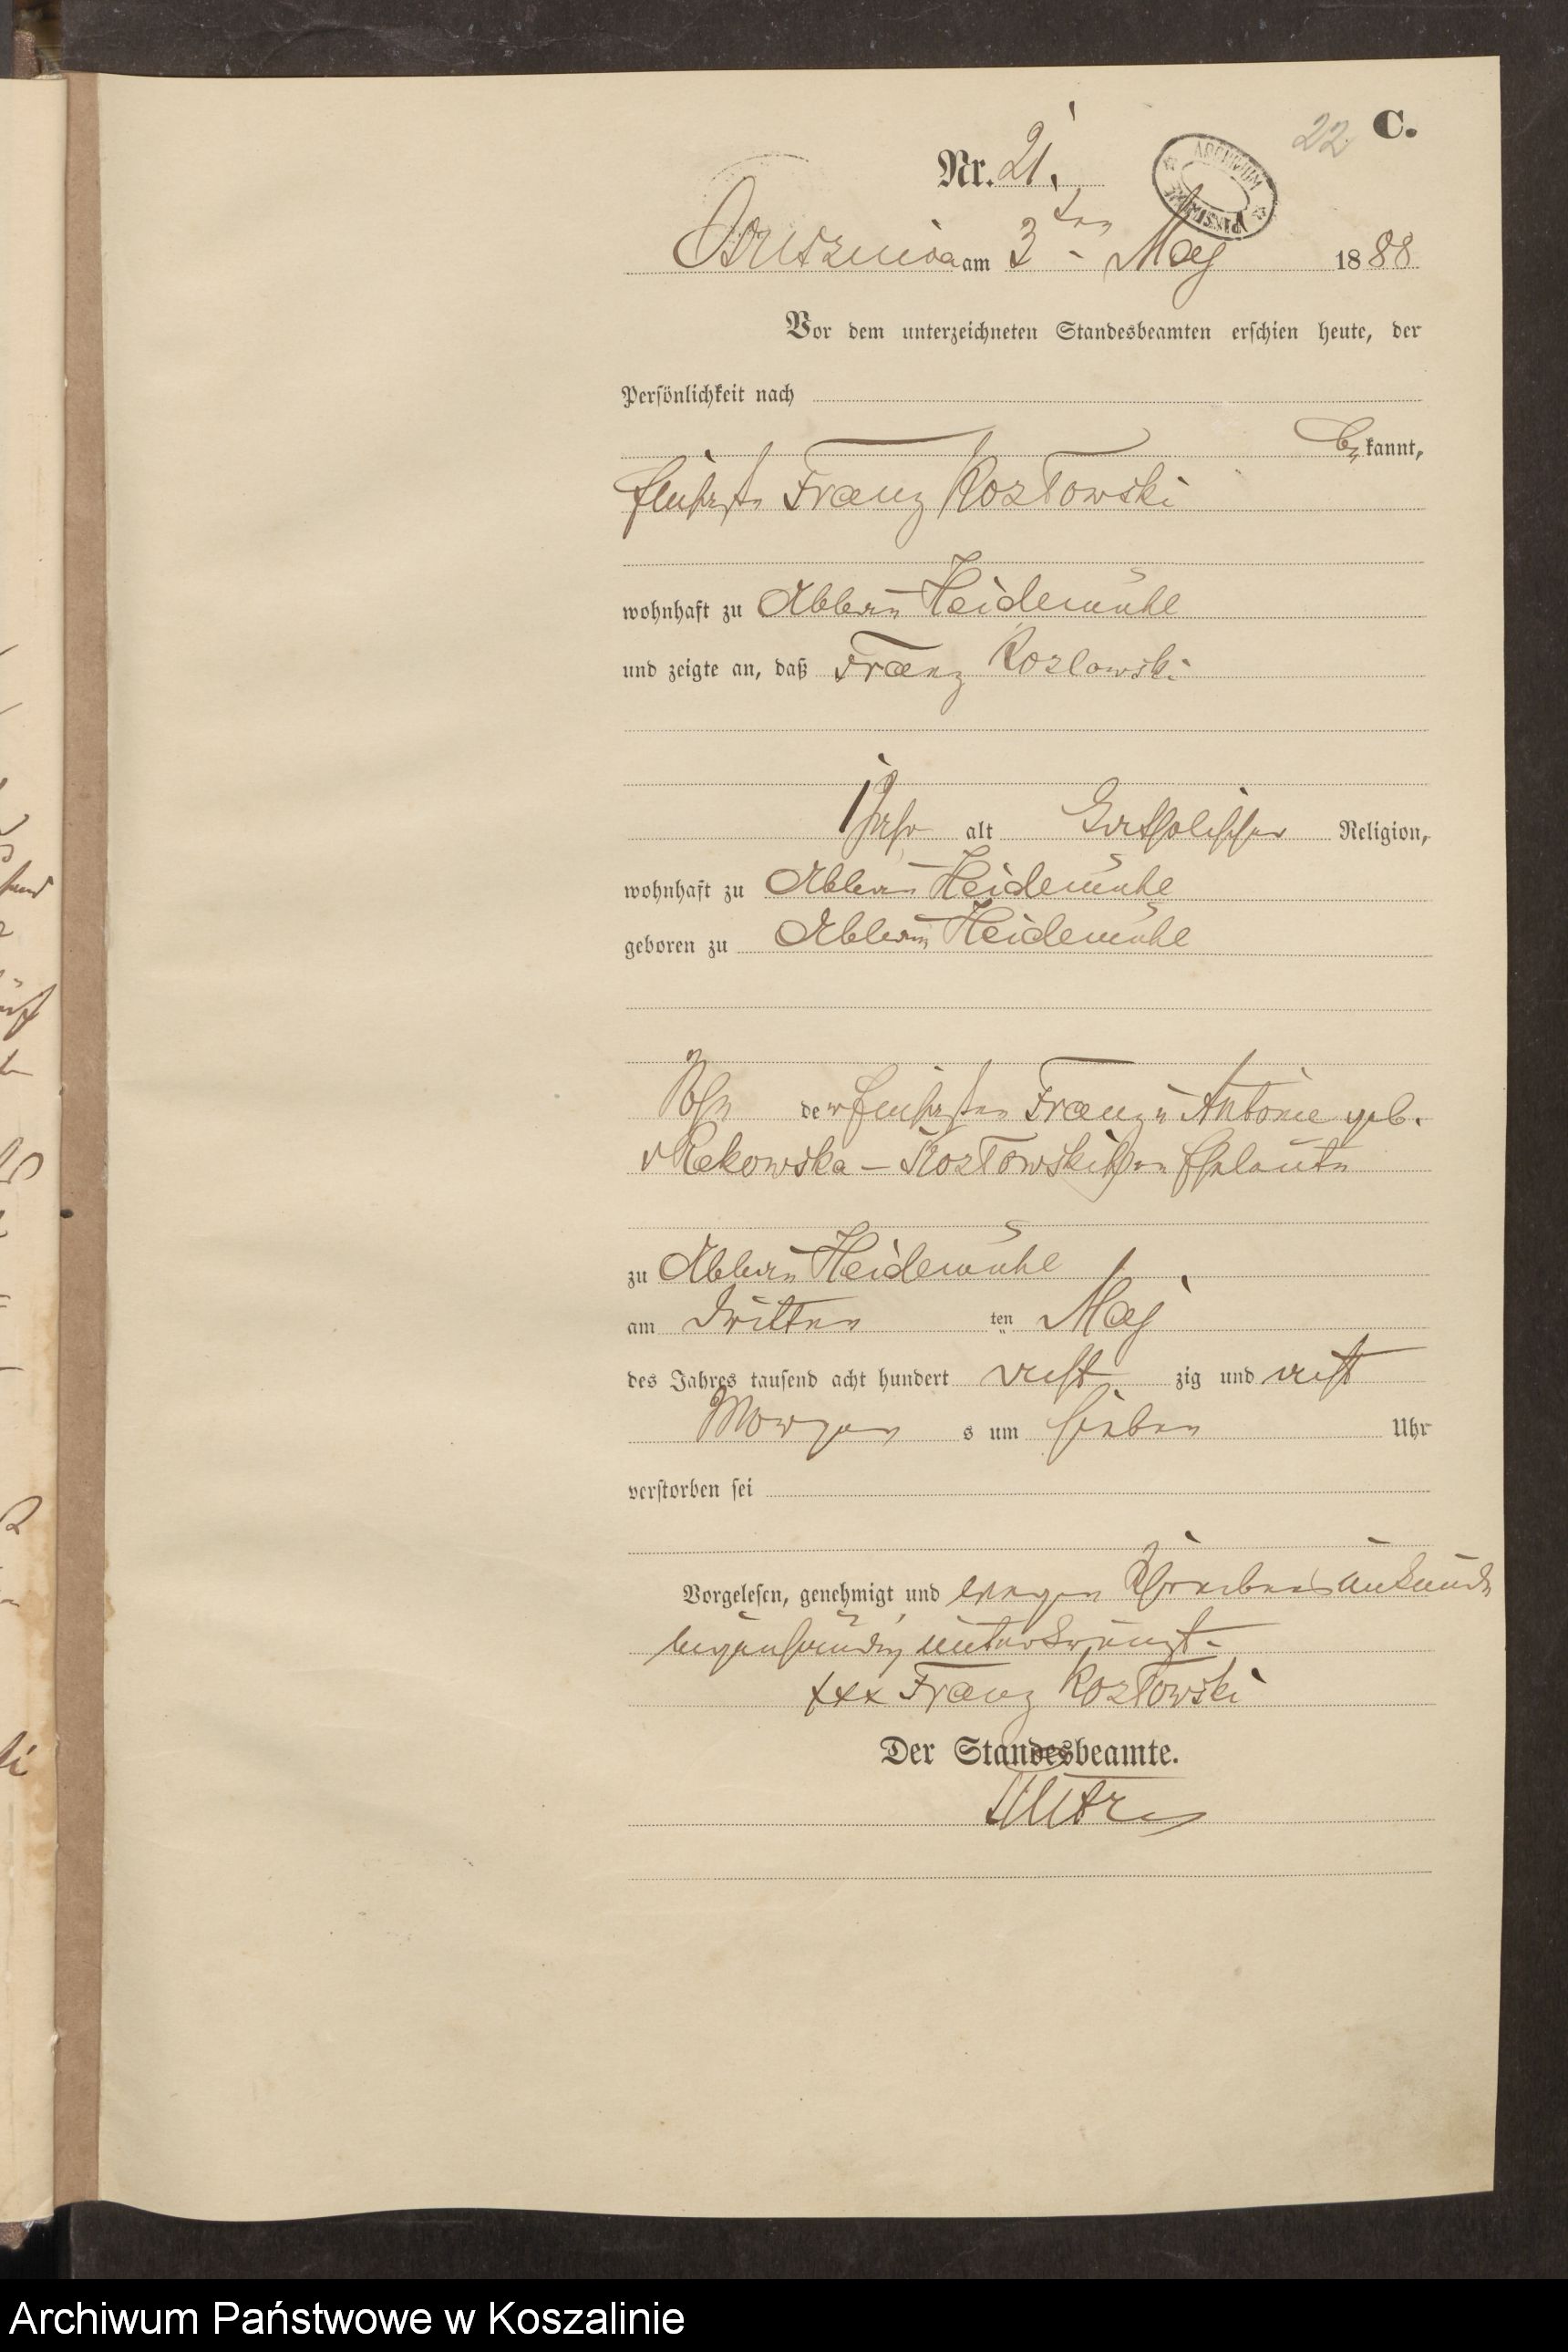 22 C.
Nr. 21.
ARCHIWUM PAŃSTWOWE
am 3ten May 1888
Vor dem unterzeichneten Standesbeamten erschien heute, der
Persönlichkeit nach
be kannt,
Franz Kozłowski
wohnhaft zu Abbau Heidemühl
und zeigte an, daß Franz Kozlowski
1 Jahr alt Catholischer Religion,
wohnhaft zu Abbau Heidemühl
geboren zu Abbau Heidemühl
Sohn der Franz u Antonie geb.
v Rekowska – Kozłowskischen Eheleute
zu Abbau Heidemühl
am Dritten ten May
des Jahres tausend acht hundert acht zig und acht
Morgen s um sieben Uhr
verstorben sei
Vorgelesen, genehmigt und wegen Schreibensunkunde
unterkreuzt.
xxx Franz Kozłowski
Der Standesbeamte.
Archiwum Państwowe w Koszalinie